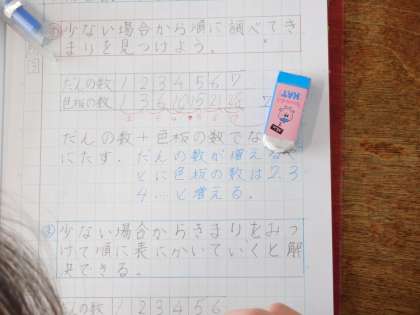 少ない場合から順に調べてき
まりを見つけよう。
だんの数 1 2 3 4 5 6 7
色板の数 1 3 6 10 15 21 28
だんの数+色板の数でな
にたす. だんの数が増える
とに色板の数は2.3
4…と増える.
少ない場合からきまりをみつ
けて順に表にかいていくと解
決できる.
だんの数 1 2 3 4 5 6